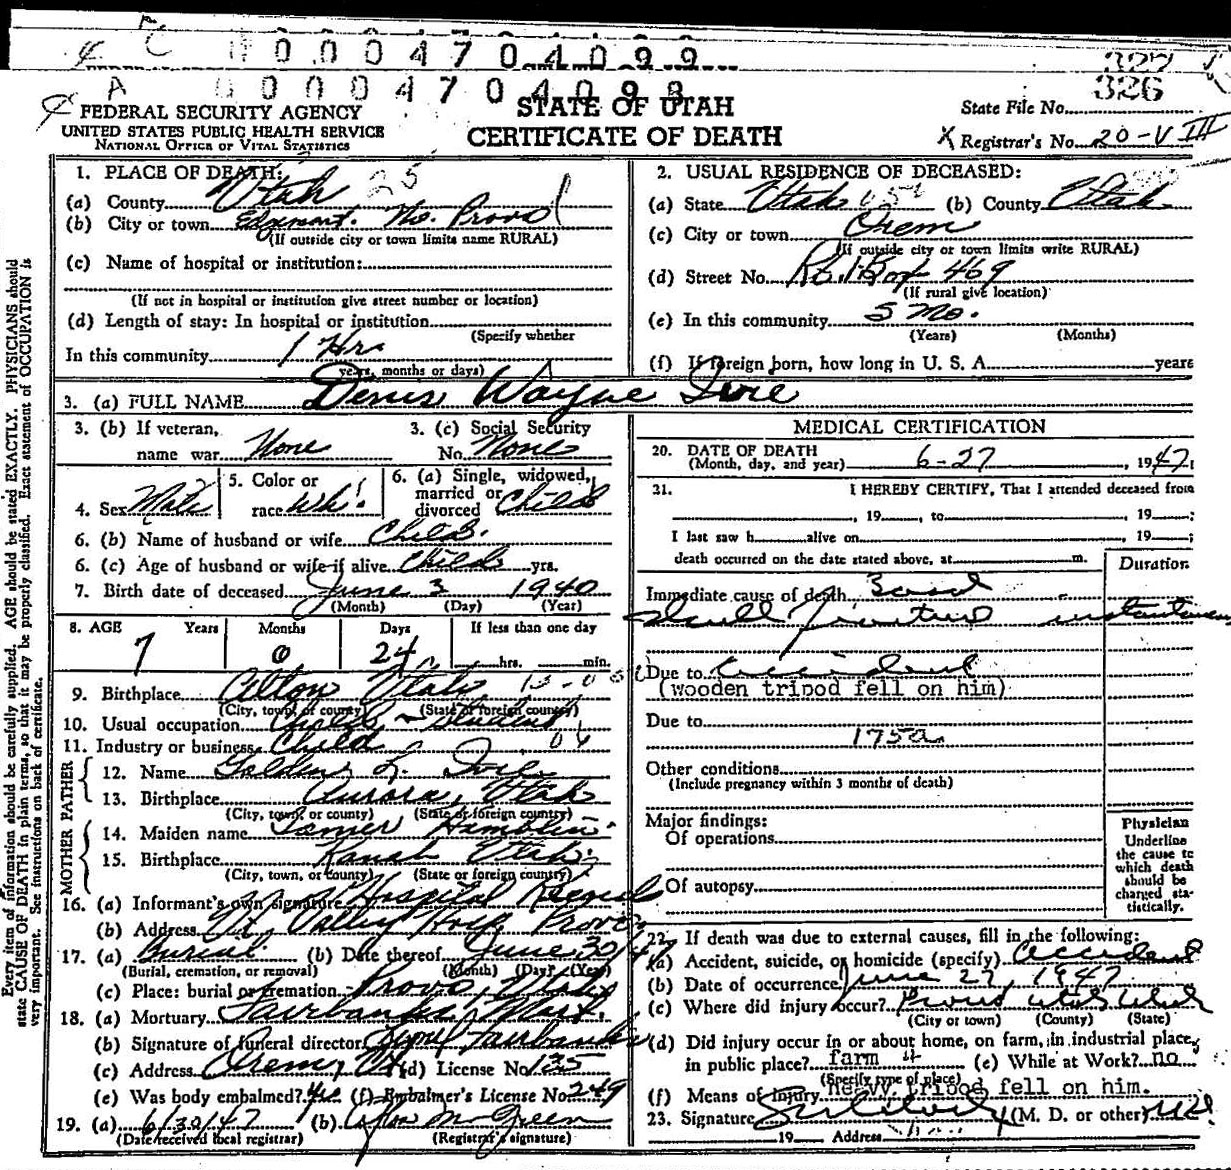 0 0 0 4 7 0 4 0 9 9
327
A 0 0 0 4 7 0 4 0 9 8
326
FEDERAL SECURITY AGENCY
UNITED STATES PUBLIC HEALTH SERVICE
NATIONAL OFFICE OF VITAL STATISTICS
STATE OF UTAH
CERTIFICATE OF DEATH
State File No.
X Registrar's No. 20-VIII
1. PLACE OF DEATH:
(a) County Utah 25
(b) City or town Edgemont. No. Provo
(If outside city or town limits name RURAL)
(c) Name of hospital or institution:
(If not in hospital or institution give street number or location)
(d) Length of stay: In hospital or institution
(Specify whether
In this community 1 Hr.
years, months or days)
2. USUAL RESIDENCE OF DECEASED:
(a) State Utah (b) County Utah
(c) City or town Orem
(If outside city or town limits write RURAL)
(d) Street No. Rt. 1 Box 469
(If rural give location)
(e) In this community 5 Mo.
(Years) (Months)
(f) If foreign born, how long in U. S. A. years
3. (a) FULL NAME Denis Wayne Ivie
3. (b) If veteran, name war None
3. (c) Social Security No. None
4. Sex Male
5. Color or race Wh.
6. (a) Single, widowed, married or divorced Child
6. (b) Name of husband or wife Child.
6. (c) Age of husband or wife if alive Child yrs.
7. Birth date of deceased June 3 1940
(Month) (Day) (Year)
8. AGE Years Months Days If less than one day
7 0 24 hrs. min.
9. Birthplace Alton Utah
(City, town, or county) (State or foreign country)
10. Usual occupation Child - Student
11. Industry or business Child
FATHER
12. Name Golden L. Ivie
13. Birthplace Aurora, Utah
(City, town, or county) (State or foreign country)
MOTHER
14. Maiden name Hamblin
15. Birthplace Kanab Utah
(City, town, or county) (State or foreign country)
16. (a) Informant's own signature Hospital Record
(b) Address Ut. Valley Hosp Provo
17. (a) Burial (b) Date thereof June 30/47
(Burial, cremation, or removal) (Month) (Day) (Year)
(c) Place: burial or cremation Provo, Utah
18. (a) Mortuary Fairbanks Mort.
(b) Signature of funeral director Fairbanks
(c) Address Orem, Ut (d) License No. 135
(e) Was body embalmed? yes (f) Embalmer's License No. 249
19. (a) 6/30/47 (b) Green
(Date received local registrar) (Registrar's signature)
MEDICAL CERTIFICATION
20. DATE OF DEATH
(Month, day, and year) 6-27, 1947
21. I HEREBY CERTIFY, That I attended deceased from
, 19 , to , 19 ;
I last saw h alive on , 19 ;
death occurred on the date stated above, at m.
Duration
Immediate cause of death Basal
skull fracture instantaneous
Due to accident
(wooden tripod fell on him)
Due to
175a
Other conditions
(Include pregnancy within 3 months of death)
Major findings:
Of operations
Of autopsy
Physician
Underline
the cause to
which death
should be
charged sta-
tistically.
22. If death was due to external causes, fill in the following:
(a) Accident, suicide, or homicide (specify) Accident
(b) Date of occurrence June 27, 1947
(c) Where did injury occur? Provo Utah Utah
(City or town) (County) (State)
(d) Did injury occur in or about home, on farm, in industrial place,
in public place? farm (e) While at Work? no
(Specify type of place)
(f) Means of injury Heavy tripod fell on him.
23. Signature (M. D. or other) MD.
19 Address
Every item of information should be carefully supplied. AGE should be stated EXACTLY. PHYSICIANS should
state CAUSE OF DEATH in plain terms, so that it may be properly classified. Exact statement of OCCUPATION is
very important. See instructions on back of certificate.